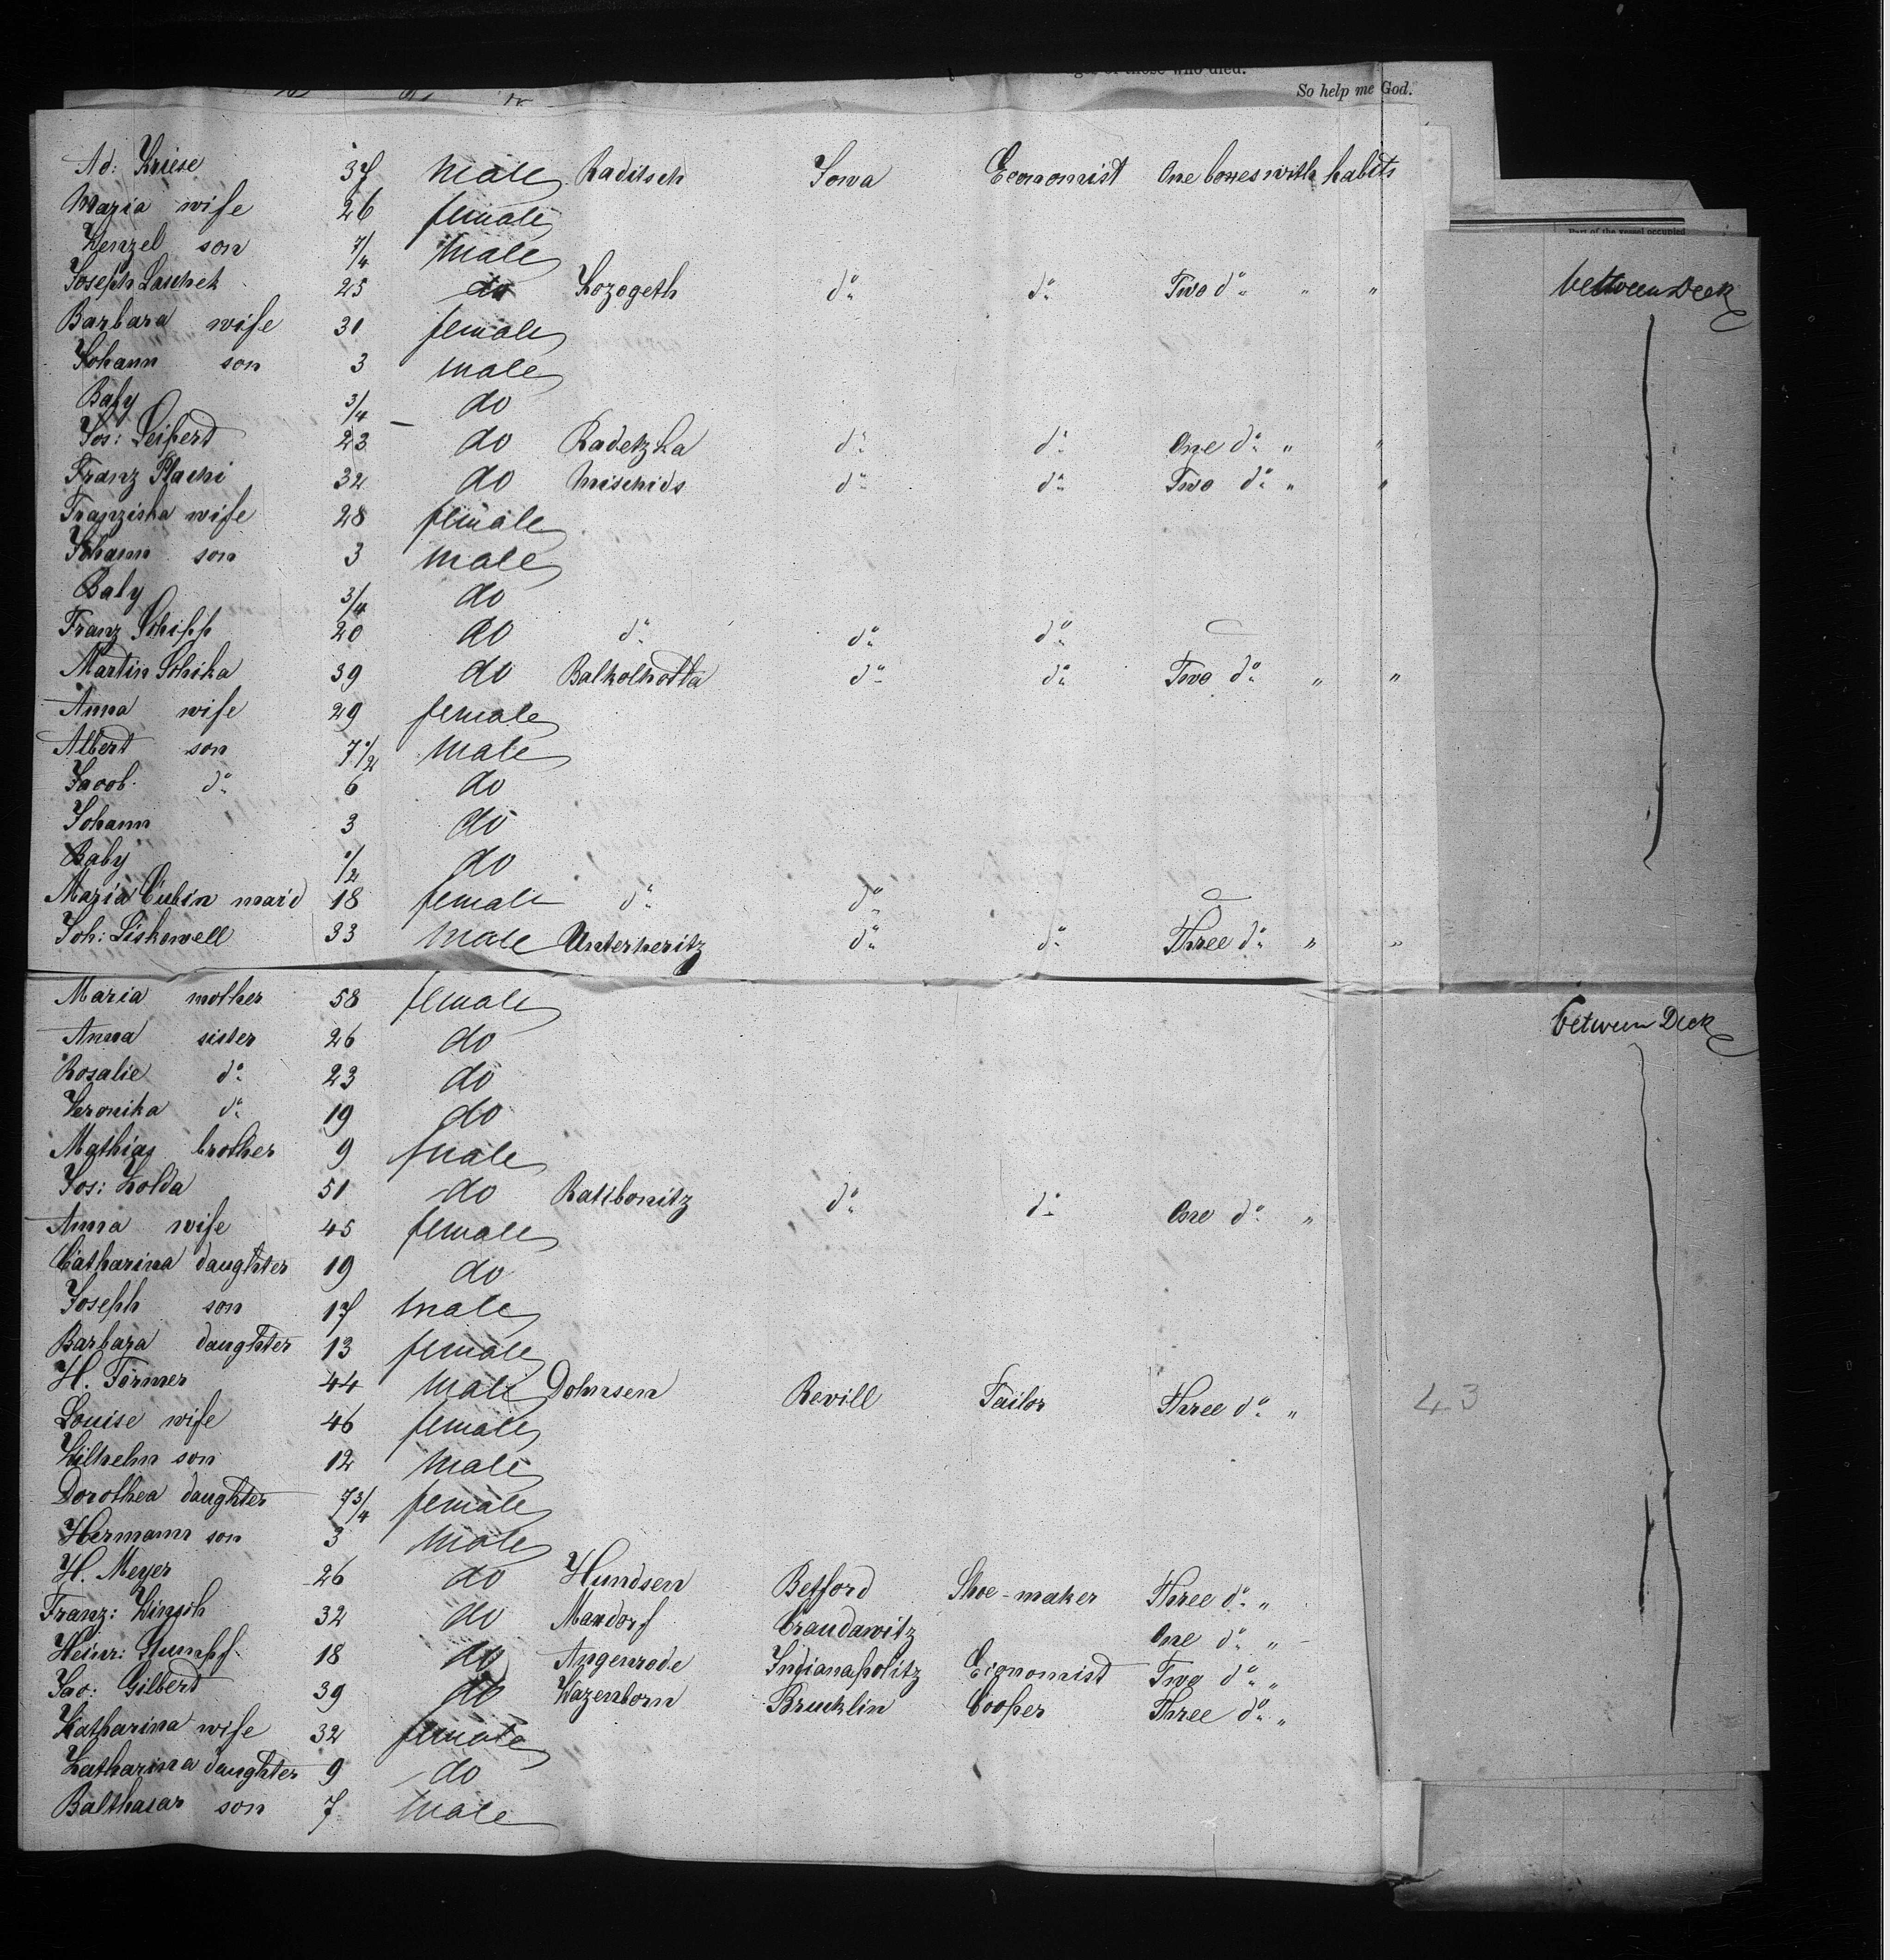 So help me God.
Ad: Kriese 37 male Raditsch Iowa Economist One boxes with habits
Maria wife 26 female
Wenzel son 7/4 male
Joseph Laschek 25 do Kozogeth do do Two do " " between Deck
Barbara wife 30 female
Johann son 3 male
Baby 3/4 do
Jos: Seifert 23 do Radetzka do do One do " "
Franz Plachi 32 do Mischids do do Two do " "
Franziska wife 28 female
Johann son 3 male
Baby 3/4 do
Franz Schipp 20 do do do do
Martin Schika 39 do Balkolkotta do do Two do " "
Anna wife 29 female
Albert son 7 1/2 male
Jacob do 6 do
Johann 3 do
Baby 1/2 do
Maria Cubin maid 18 female do do
Joh: Liskowell 33 male Unterheritz do do Three do " "
Maria mother 58 female
Anna sister 26 do between Deck
Rosalie do 23 do
Veronika do 19 do
Mathias brother 9 male
Jos: Kolda 51 do Ratibonitz do do One do "
Anna wife 45 female
Catharina daughter 19 do
Joseph son 17 male
Barbara daughter 13 female
H. Törmer 44 male Dohnsen Revill Tailor Three do " 43
Louise wife 46 female
Wilhelm son 12 male
Dorothea daughter 7 3/4 female
Hermann son 3 male
H. Meyer 26 do Hundsen Betford Shoe-maker Three do "
Franz: Winsch 32 do Mandorf Craudawitz One do "
Heinr: Stumpf 18 do Angenrode Indianapolitz Economist Two do "
Jac: Gilbert 39 do Wazenborn Brucklin Cooper Three do "
Katharina wife 32 female
Katharina daughter 9 do
Balthasar son 7 male